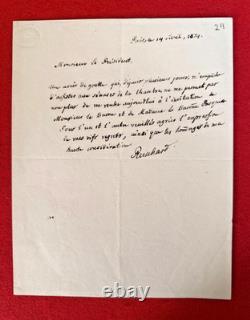 29
Paris le 14 avril, 1834.
Monsieur le Président,
Une accès de goutte qui, depuis plusieurs jours, m'empêche
d'assister aux séances de la chambre ne me permet pas
non plus de me rendre aujourd'hui à l'invitation de
Monsieur le Baron et de Madame la Baronne Pasquier
Tous l'un et l'autre veuillez agréer l'expression
de mes vifs regrets, ainsi que les hommages de ma
haute considération
Reinhard